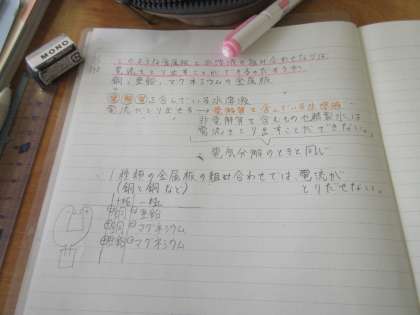 MONO
どのような金属板と水溶液の組み合わせならば
電流をとり出すことができるだろうか。
銅、亜鉛、マグネシウムの金属板
電解質を含んでいる水溶液
電流がとり出せる→電解質を含んでいる水溶液
非電解質を含むものや精製水は
電流をとり出すことができない。
電気分解のときと同じ
1種類の金属板の組み合わせでは、電流が
(銅と銅など)
とりだせない。
+極 -極
⊕銅 ⊖亜鉛
⊕銅 ⊖マグネシウム
⊕亜鉛 ⊖マグネシウム